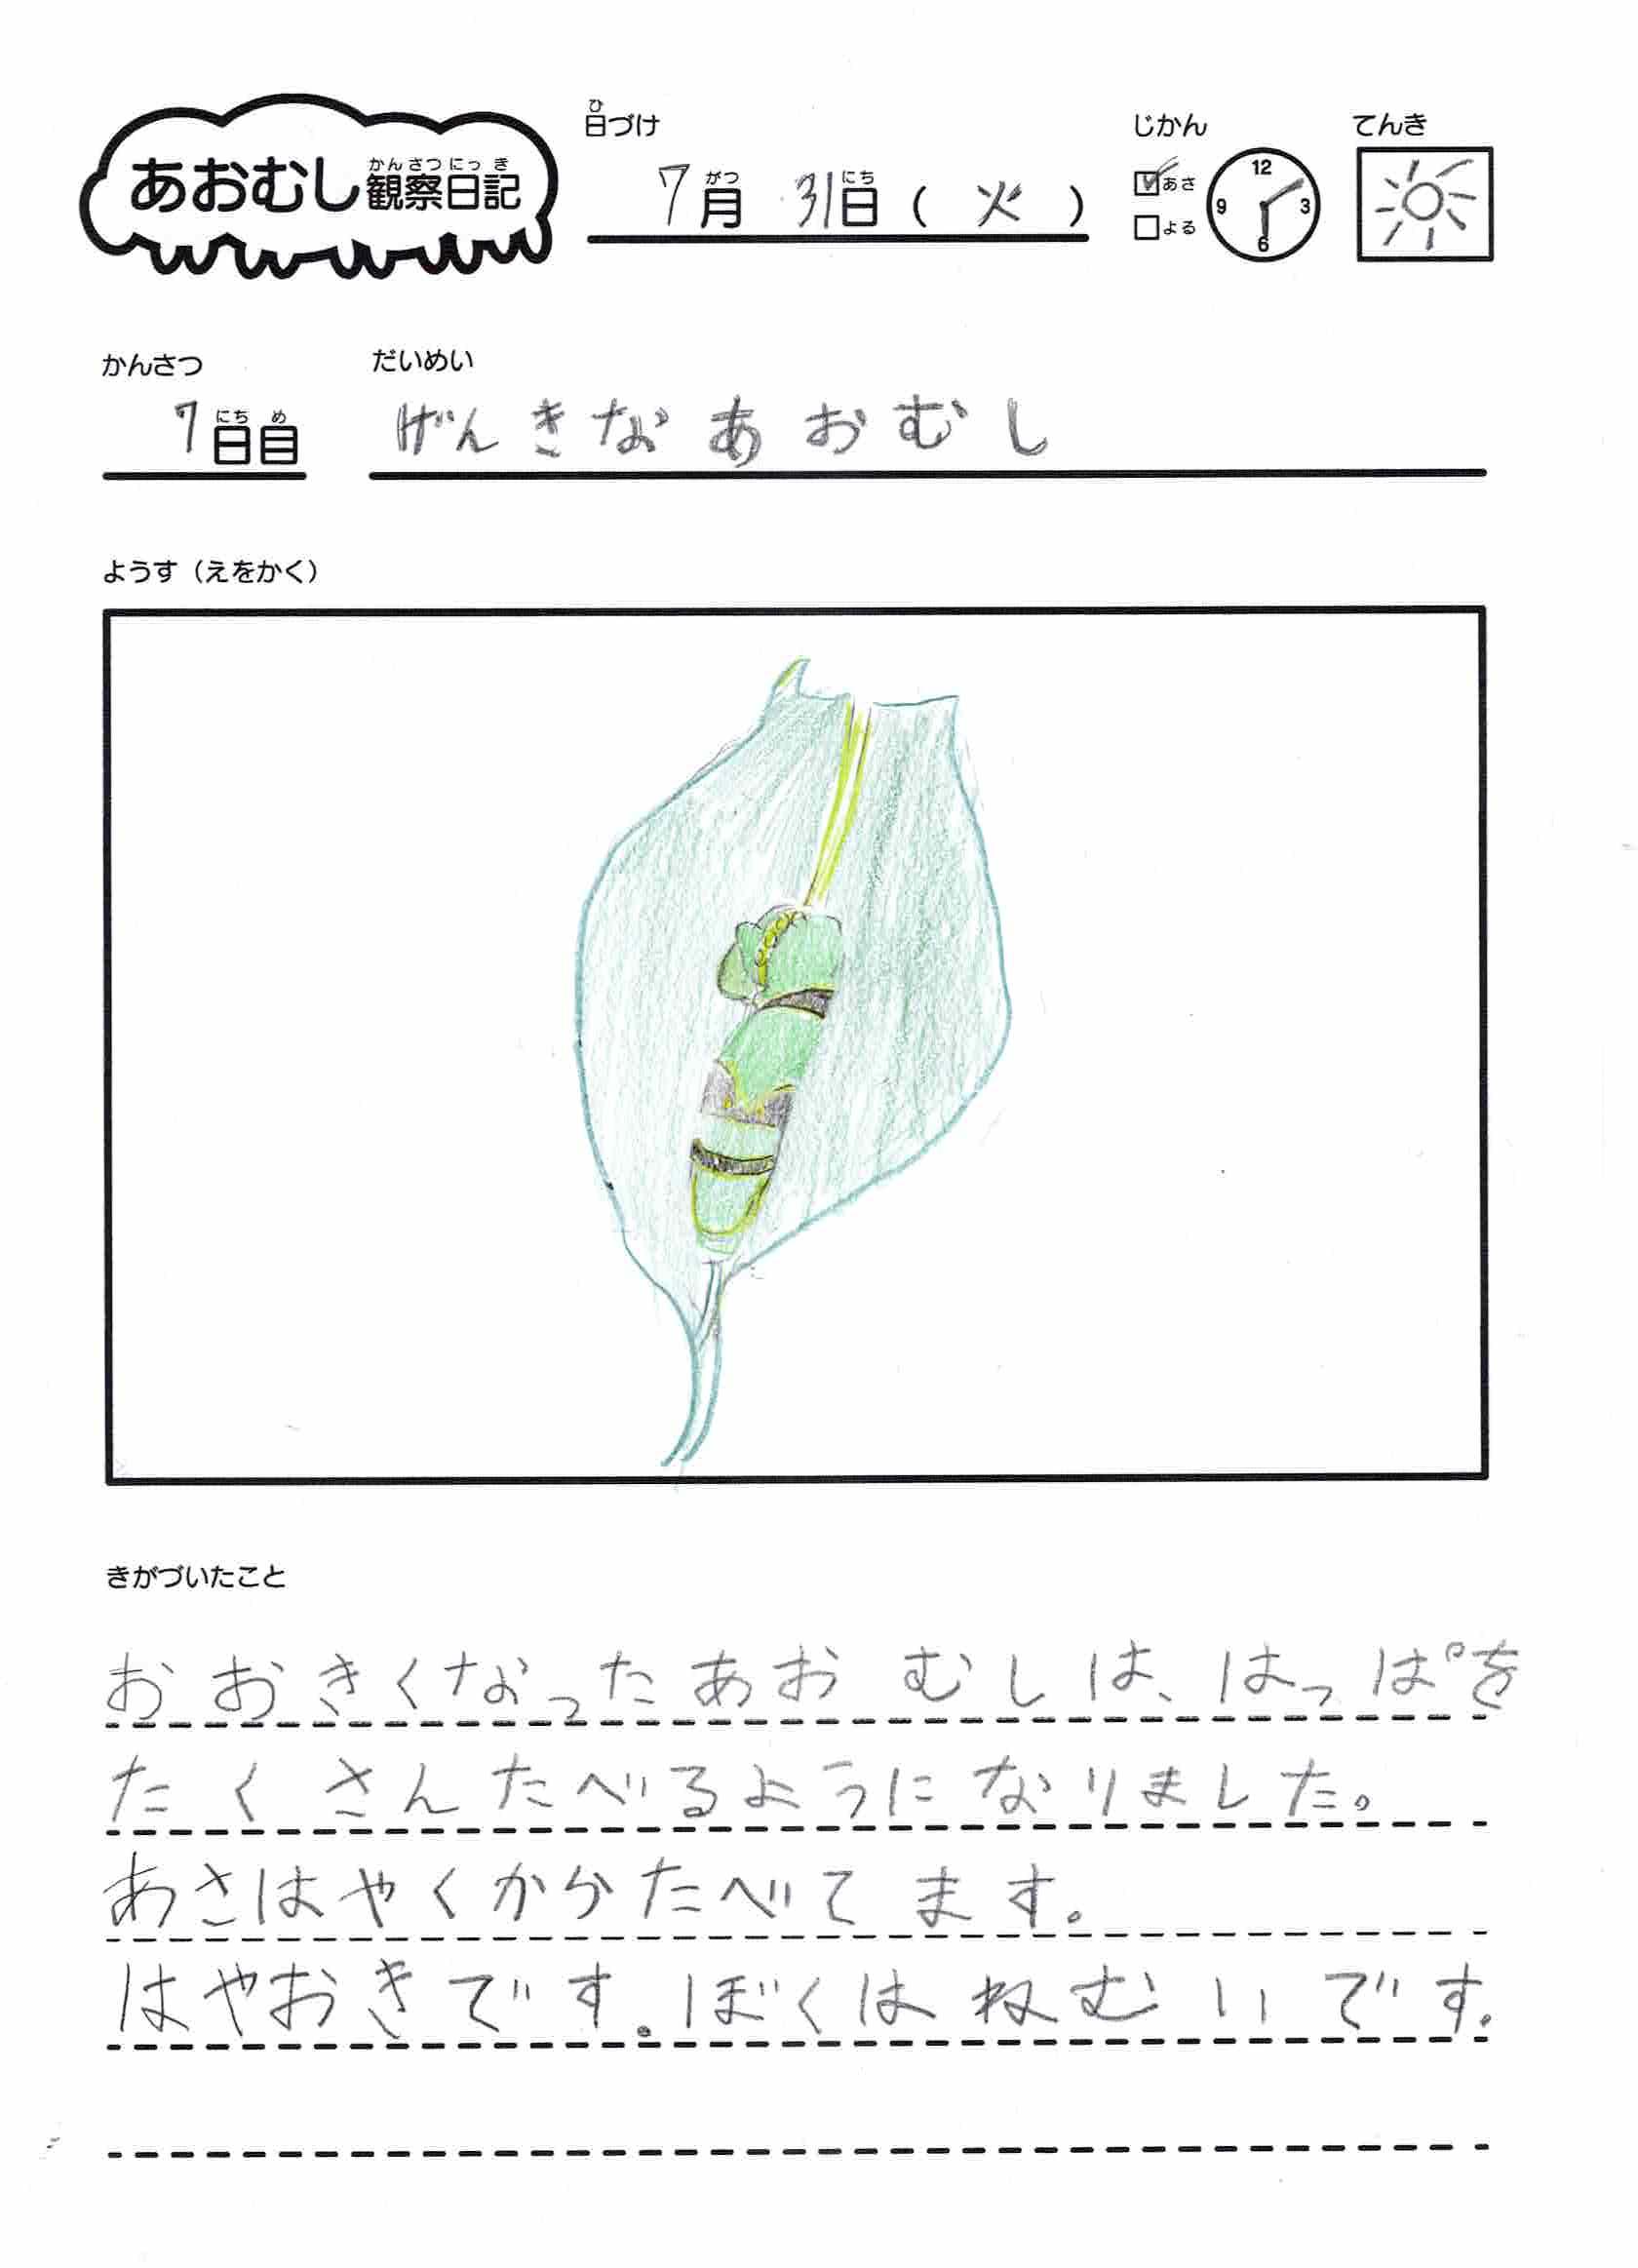 あおむし観察日記
かんさつにっき
日づけ
ひ
7月 31日(火)
がつ にち
じかん
あさ
よる
12
3
6
9
てんき
かんさつ
7日目
にちめ
だいめい
げんきなあおむし
ようす(えをかく)
きがづいたこと
おおきくなったあおむしは、はっぱを
たくさんたべるようになりました。
あさはやくからたべてます。
はやおきです。ぼくはねむいです。